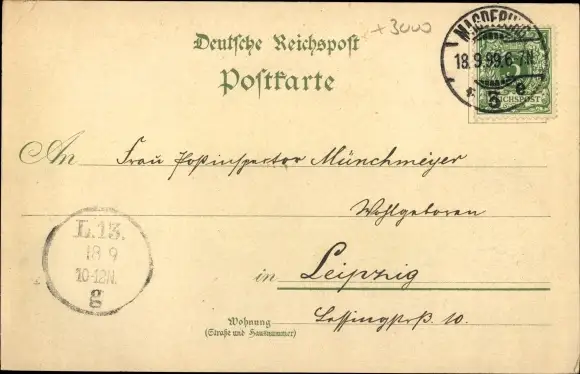 +3000
Deutsche Reichspost
Postkarte
MAGDEBURG
18.9.99.6-7N.
5 e
REICHSPOST
An Frau Postinspector Münchmeyer
Wohlgeboren
in Leipzig
Lessingstr. 10.
Wohnung
(Straße und Hausnummer)
L.13.
18 9
10-12N.
g